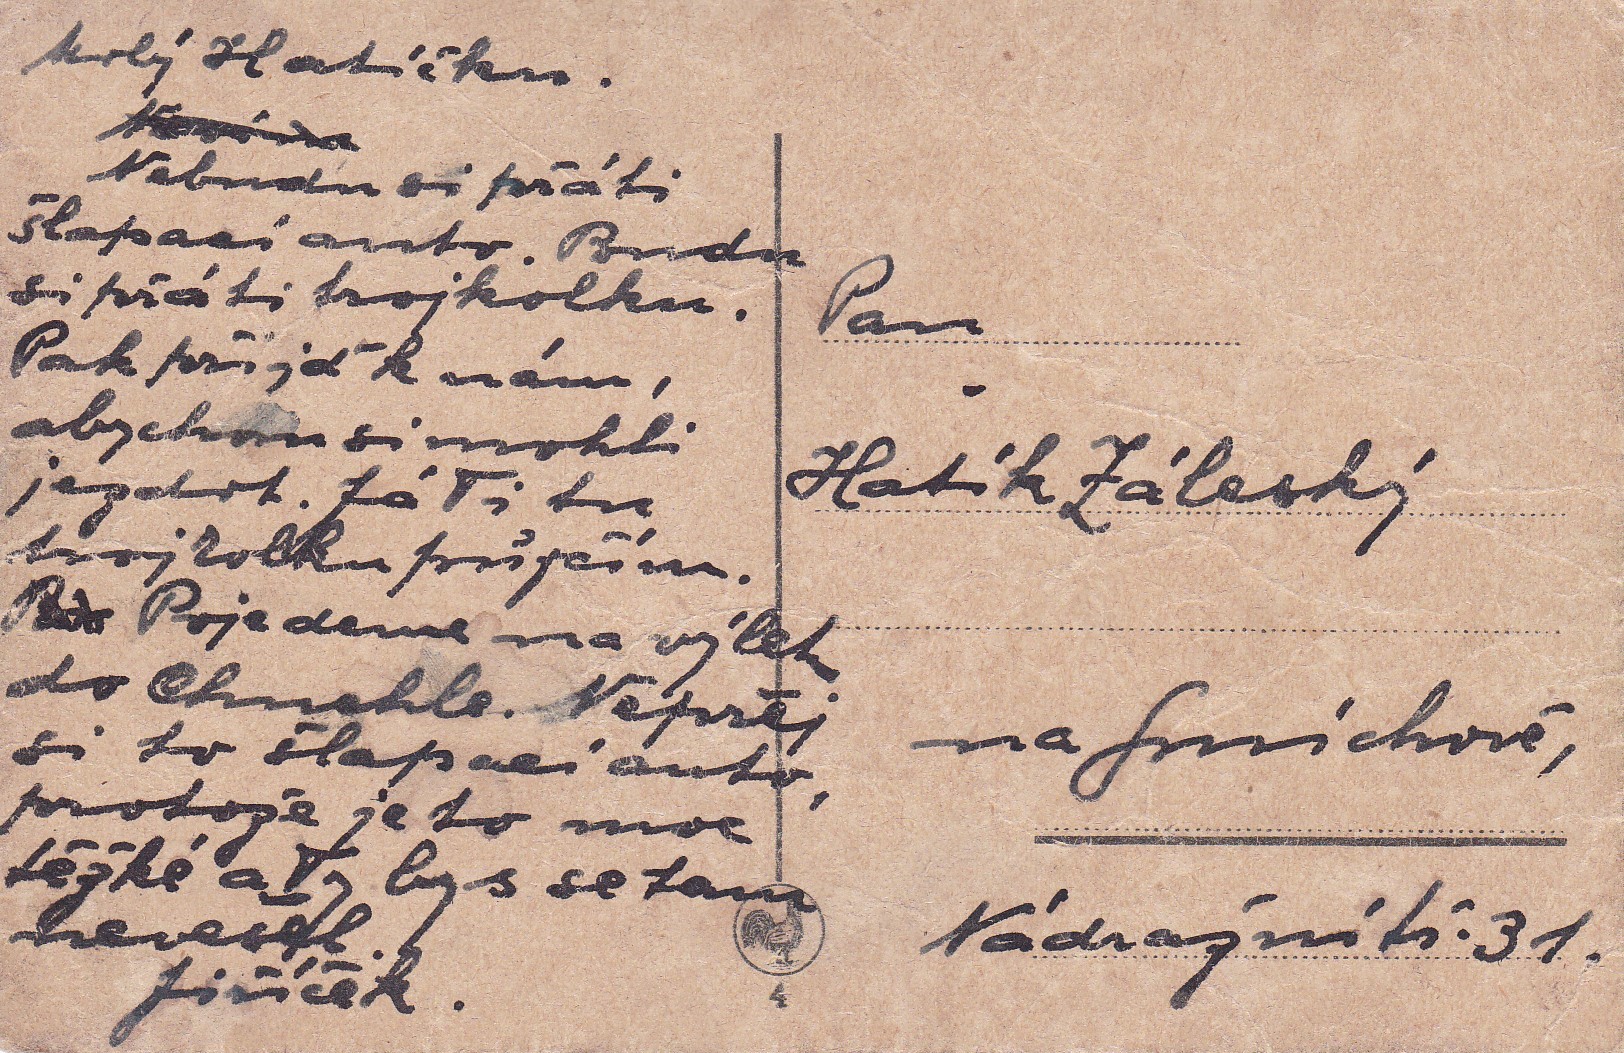 Milý Hatíčku.
Nebudu si přáti
šlapací auto. Budu
si přáti trojkolku.
Pak přijď k nám,
abychom si mohli
jezdit. Já Ti tu
trojkolku pučím.
Pojedeme na výlet
do Chuchle. Nepřej
si to šlapací auto,
protože je to moc
těžké a Ty bys se tam
nevešel.
Jiříček.
Pan
Hatík Záleský
na Smíchově,
Nádražní tř. 31.
4